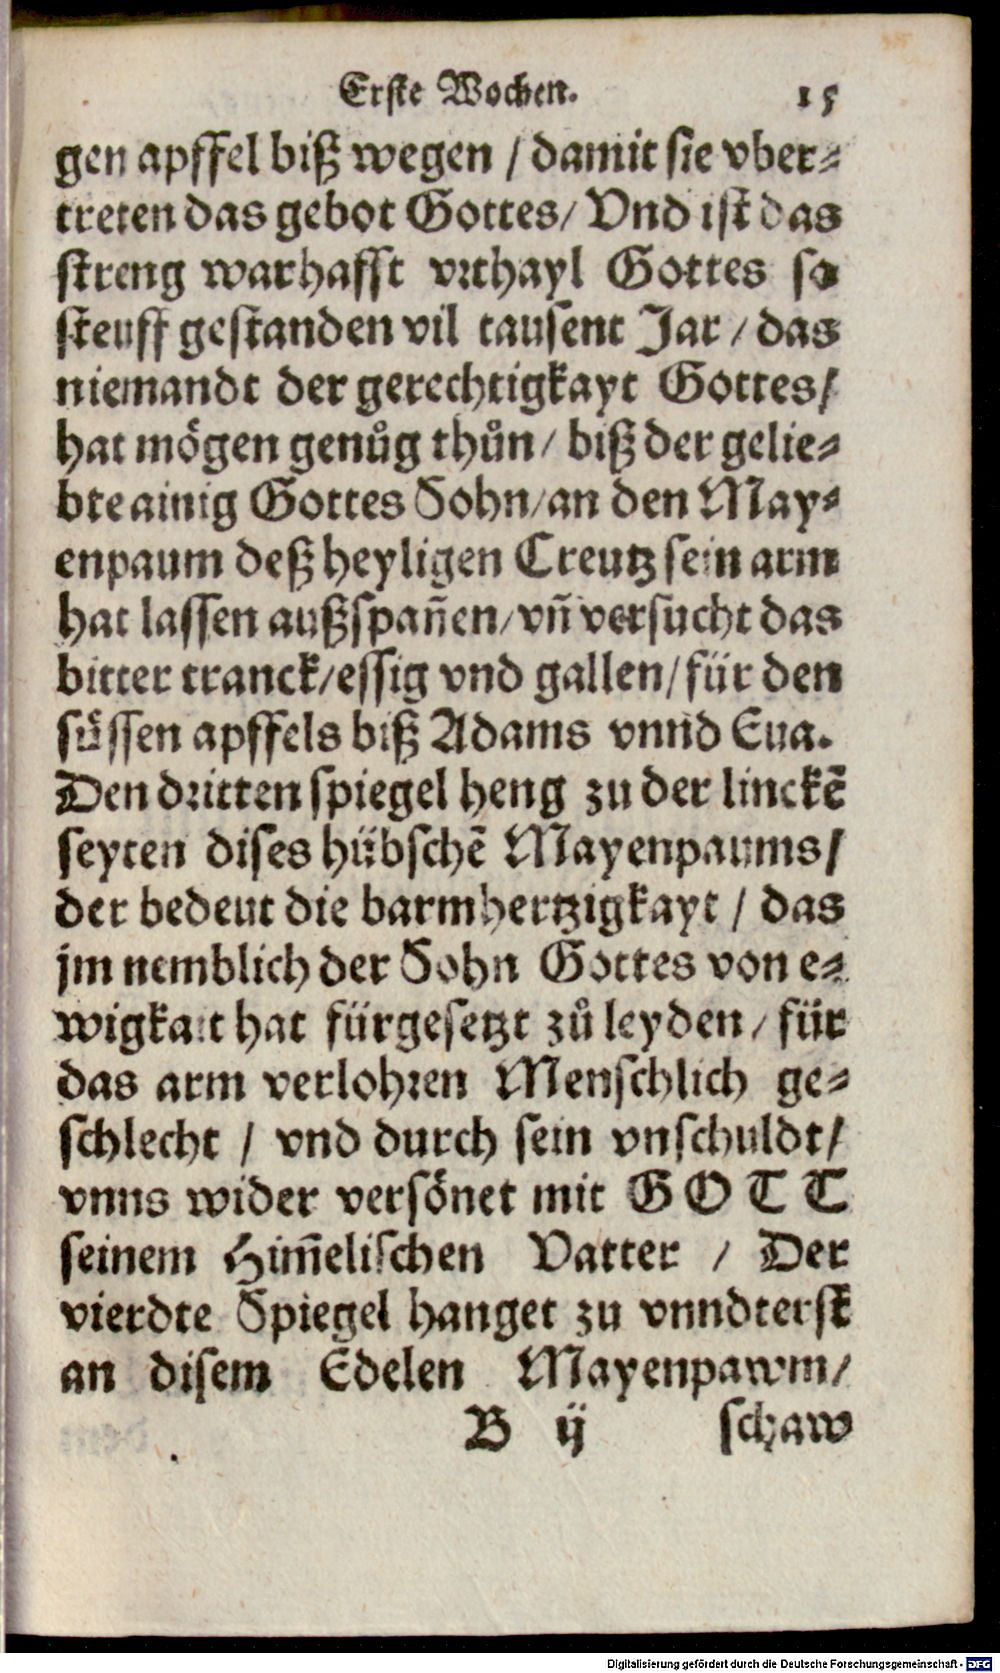 Erste Wochen. 15
gen apffel biß wegen / damit sie vber⸗
treten das gebot Gottes/ Vnd ist das
streng warhafft vrthayl Gottes so
steuff gestanden vil tausent Jar / das
niemandt der gerechtigkayt Gottes/
hat mögen genůg thůn / biß der gelie⸗
bte ainig Gottes Sohn/an den May⸗
enpaum deß heyligen Creutz sein arm
hat lassen außspañen/vñ versucht das
bitter tranck/essig vnd gallen/für den
süssen apffels biß Adams vnnd Eua.
Den dritten spiegel heng zu der linckē
seyten dises hübschē Mayenpaums/
der bedeut die barmhertzigkayt / das
jm nemblich der Sohn Gottes von e⸗
wigkait hat fürgesetzt zů leyden / für
das arm verlohren Menschlich ge⸗
schlecht / vnd durch sein vnschuldt/
vnns wider versönet mit GOTT
seinem Him̃elischen Vatter / Der
vierdte Spiegel hanget zu vnndterst
an disem Edelen Mayenpawm/
B ij schaw
Digitalisierung gefördert durch die Deutsche Forschungsgemeinschaft - DFG